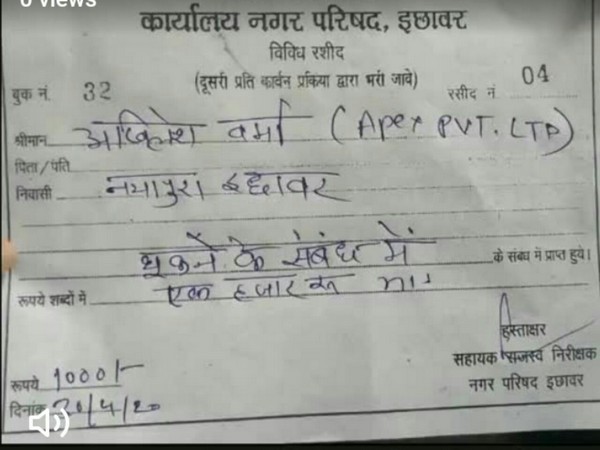 0 views
कार्यालय नगर परिषद, इछावर
विविध रशीद
(दूसरी प्रति कार्वन प्रकिया द्वारा भरी जावे)
बुक नं. 32 रसीद नं. 04
श्रीमान अखिलेश वर्मा (Apex PVT. LTD)
पिता/पति
निवासी नयापुरा इछावर
थूकने के संबंध में के संबध में प्राप्त हुये।
रूपये शब्दों में एक हजार रू मा
हस्ताक्षर
सहायक राजस्व निरीक्षक
नगर परिषद इछावर
रूपये 1000/-
दिनांक /4/20